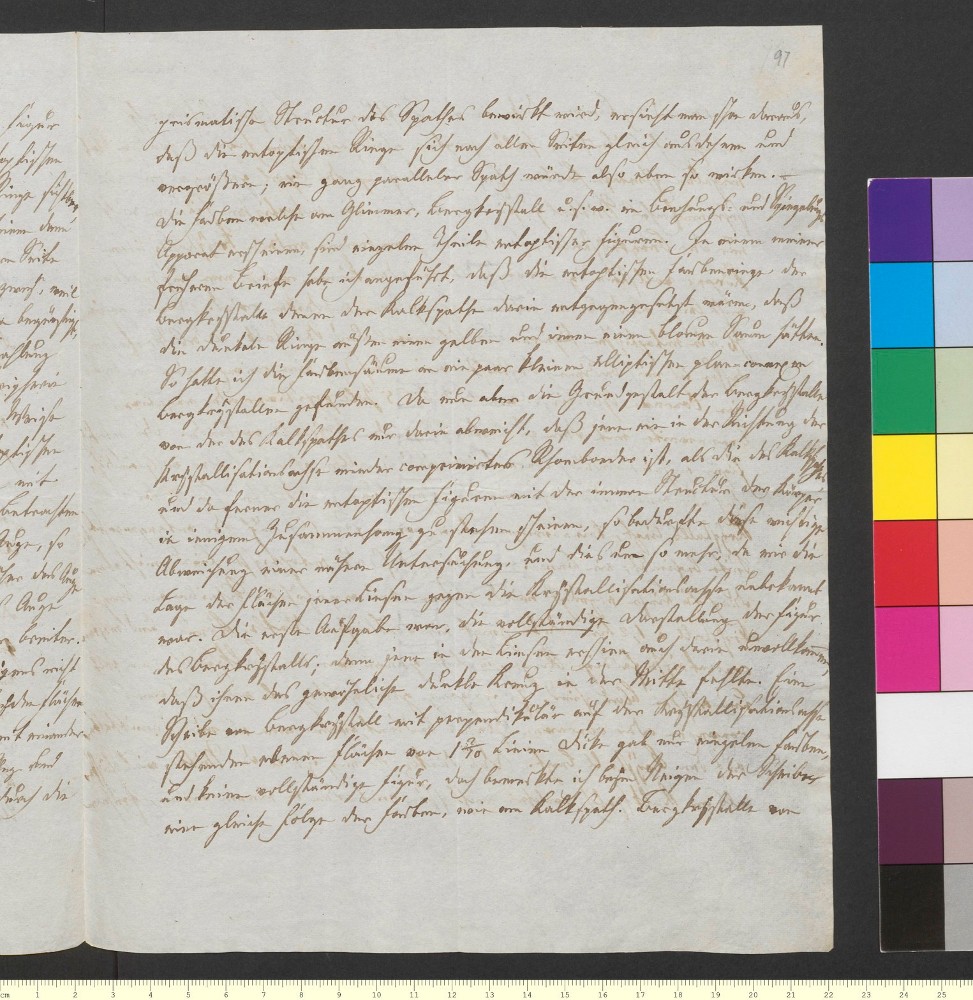 97
prismatische Structur des Spathes bewirkt wird, ersieht man schon daraus,
daß die entoptischen Ringe sich nach allen Seiten gleich ausdehnen und
vergrößern; ein ganz paralleler Spath würde also eben so wirken. –
Die Farben welche am Glimmer, Bergkrystall u.s.w. im Beugungs- und Spiegelungs-
Apparat erscheinen, sind einzelne Theile entoptischer Figuren. In einem meiner
früheren Briefe habe ich angeführt, daß die entoptischen Farbenringe, des
Bergkrystalls denen des Kalkspaths darin entgegengesetzt waren, daß
die dunkele Ringe außen einen gelben und innen einen blauen Saum hätten.
So hatte ich die Farbensäume an ein paar kleinen elliptischen plan-convexen
Bergkrystallen gefunden. Da nun aber die Grundgestalt des Bergkrystalls
von der des Kalkspathes nur darin abweicht, daß jene ein in der Richtung der
Krystallisationsachse minder comprimirtes Rhomboeder ist, als die des Kalkspaths
und da ferner die entoptischen Figuren mit der innern Structur der Körper
in innigem Zusammenhang zu stehen scheinen, so bedurfte diese wichtige
Abweichung einer nähern Untersuchung, und dies um so mehr, da mir die
Lage der Flächen jener Linsen gegen die Krystallisationsachse unbekannt
war. Die erste Aufgabe war, die vollständige Darstellung der Figur
des Bergkrystalls; denn jene in den Linsen erschien auch darin unvollkommen,
daß ihnen das gewöhnliche dunkle Kreuz in der Mitte fehlte. Eine
Scheibe von Bergkrystall mit perpendikulär auf der Krystallisationsachse
stehenden ebenen Flächen von 1 2/10 Linien Dicke gab nur einzelne Farben,
und keine vollständige Figur, doch bemerkte ich beym Neigen der Scheibe
eine gleiche Folge der Farben, wie am Kalkspath. Bergkrystalle von